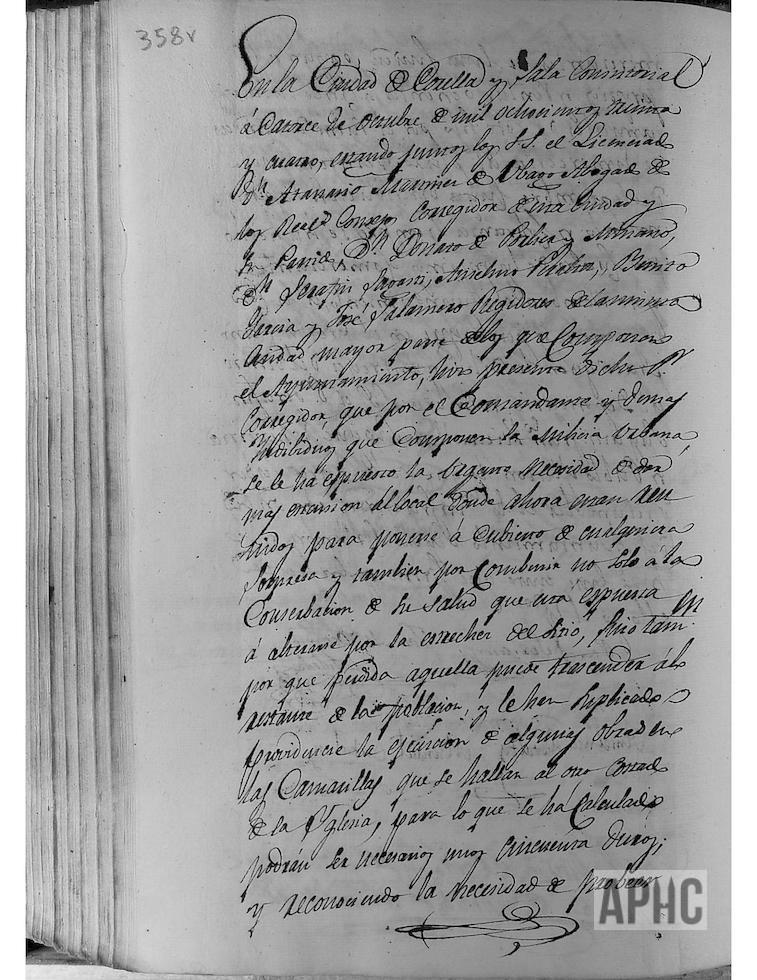 358v
En la Ciudad de Corella y Sala Consistorial
á Catorce de Octubre de mil ochocientos treinta
y cuatro, estando juntos los SS. el Licenciado
Dn. Atanasio Martinez de Ubago Abogado de
los Reales Consejos Corregidor de esta ciudad y
su Partido, Dn. Donato de Peralta y
Dn. Serafin Anselmo Benito
Garcia y José Salamero Regidores de la misma
Ciudad mayor parte de los que Componen
el Ayuntamiento, hizo presente dicho Sr.
Corregidor, que por el Comandante y demas
Yndibiduos que Componen la Milicia Urbana
se le ha espuesto la Urgente Necesidad de dar
mas estension al local donde ahora estan reu
nidos para ponerse á Cubierto de cualquiera
Sorpresa y tambien por Combenir no solo á la
Conserbacion de su salud que esta espuesta
á alterarse por la estrechez del Sitio, sino tam-
por que perdida aquella puede trascender al
restante de la poblacion, y le han suplicado
providencie la ejecucion de algunas obras en
las Camarillas que se hallan al otro costado
de la Yglesia, para lo que se há Calculado
podrán ser necesarios unos Cincuenta duros;
y reconociendo la necesidad de probeer
APHC